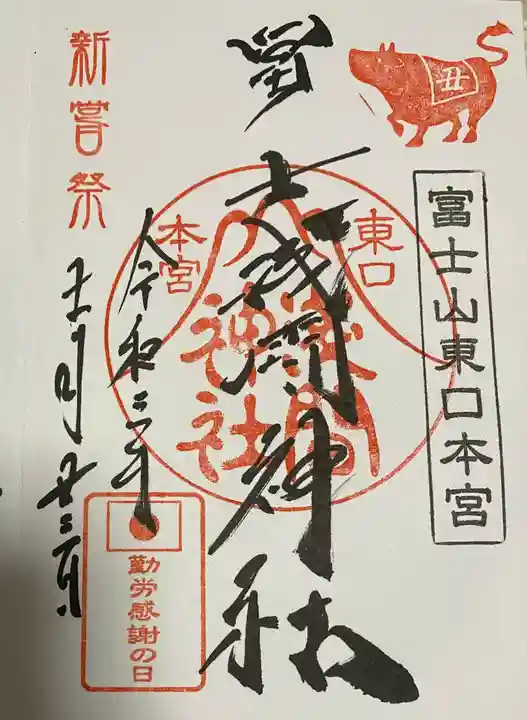 丑
富士山東口本宮
冨士浅間神社
東口
本宮
浅間
神社
新嘗祭
令和三年
十一月廿三日
勤労感謝の日